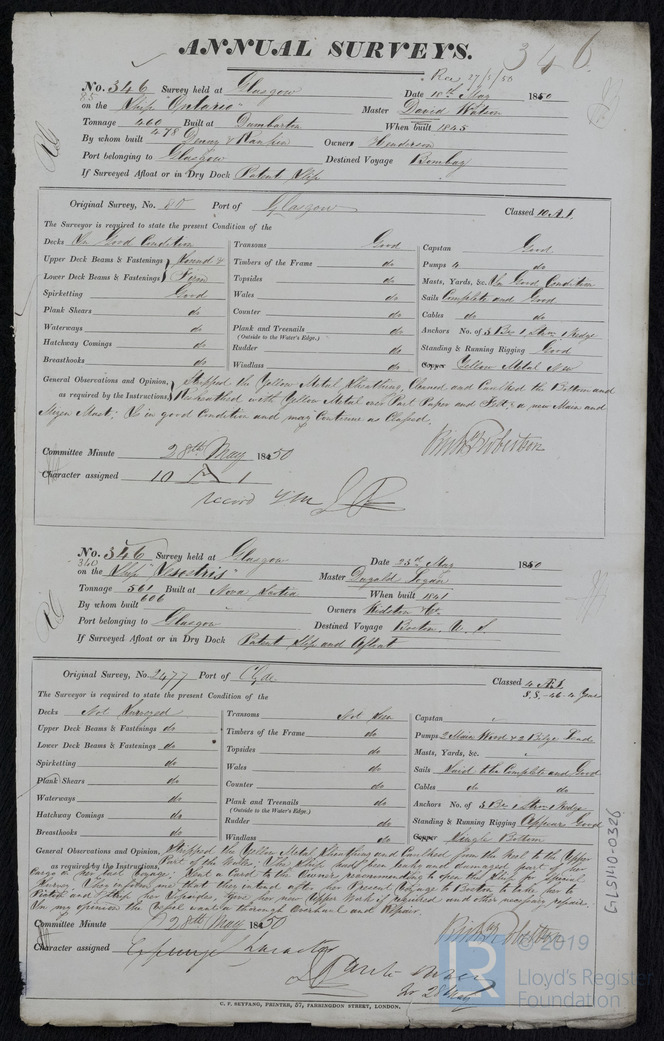 ANNUAL SURVEYS.
346.
Rec 27/5/50
No. 346 Survey held at Glasgow Date 10th May 1850
85
on the Ship "Ontario" Master David Watson
Tonnage 460 Built at Dumbarton When built 1845
478
By whom built Denny & Rankin Owners Henderson
Port belonging to Glasgow Destined Voyage Bombay
If Surveyed Afloat or in Dry Dock Patent Slip
Original Survey, No. 80 Port of Glasgow Classed 10 A 1
The Surveyor is required to state the present Condition of the
Decks In Good Condition
Upper Deck Beams & Fastenings } Sound &
Lower Deck Beams & Fastenings } Firm
Spirketting Good
Plank Shears do
Waterways do
Hatchway Comings do
Breasthooks do
Transoms Good
Timbers of the Frame do
Topsides do
Wales do
Counter do
Plank and Treenails do
(Outside to the Water's Edge.)
Rudder do
Windlass do
Capstan Good
Pumps 4 do
Masts, Yards, &c. In Good Condition
Sails Complete and Good
Cables do do
Anchors No. of 3 Br 1 Strm 1 Kedge
Standing & Running Rigging Good
Copper Yellow Metal New
General Observations and Opinion, Stripped the Yellow Metal Sheathing, Cleaned and Caulked the Bottom and
as required by the Instructions, Resheathed with Yellow Metal over Part Paper and Felt; a new Main and
Mizen Mast; Is in good Condition and may Continue as Classed.
Robertson
Committee Minute 28th May 1850
Character assigned 10 A 1
record YM
No. 346 Survey held at Glasgow Date 23rd May 1850
340
on the Ship "Sesostris" Master Dugald Logan
Tonnage 561 Built at Nova Scotia When built 1841
606
By whom built Owners Kidston & Co.
Port belonging to Glasgow Destined Voyage Boston, U. S.
If Surveyed Afloat or in Dry Dock Patent Slip and Afloat
Original Survey, No. 2477 Port of Clyde Classed 4 Æ 1
S.S. -46-4 Year
The Surveyor is required to state the present Condition of the
Decks Not Surveyed
Upper Deck Beams & Fastenings do
Lower Deck Beams & Fastenings do
Spirketting do
Plank Shears do
Waterways do
Hatchway Comings do
Breasthooks do
Transoms Not Seen
Timbers of the Frame do
Topsides do
Wales do
Counter do
Plank and Treenails do
(Outside to the Water's Edge.)
Rudder do
Windlass do
Capstan
Pumps 2 Main Wood & 2 Bilge Lead
Masts, Yards, &c.
Sails Said to be Complete and Good
Cables do do
Anchors No. of 3 Br 1 Strm 1 Kedge
Standing & Running Rigging Appear Good
Copper Single Bottom
General Observations and Opinion, Stripped the Yellow Metal Sheathing and Caulked from the Keel to the Upper
as required by the Instructions, Part of the Wales; The Ship having been leaky and damaged part of her
Cargo on her last Voyage; Sent a Card to the Owner recommending to open the Ship for Special
Survey; They inform me that they intend after her Present Voyage to Boston to take her to
and Strip her Topsides, Give her new Upper Works if required and other necessary repairs
In my opinion the Vessel wants a thorough Overhaul and Repair.
Robertson
Committee Minute 28th May 1850
Character assigned Expunge Character
28 May
C. F. SEYFANG, PRINTER, 57, FARRINGDON STREET, LONDON.
GLS1140-0326
© 2019
LR
Lloyd's Register
Foundation